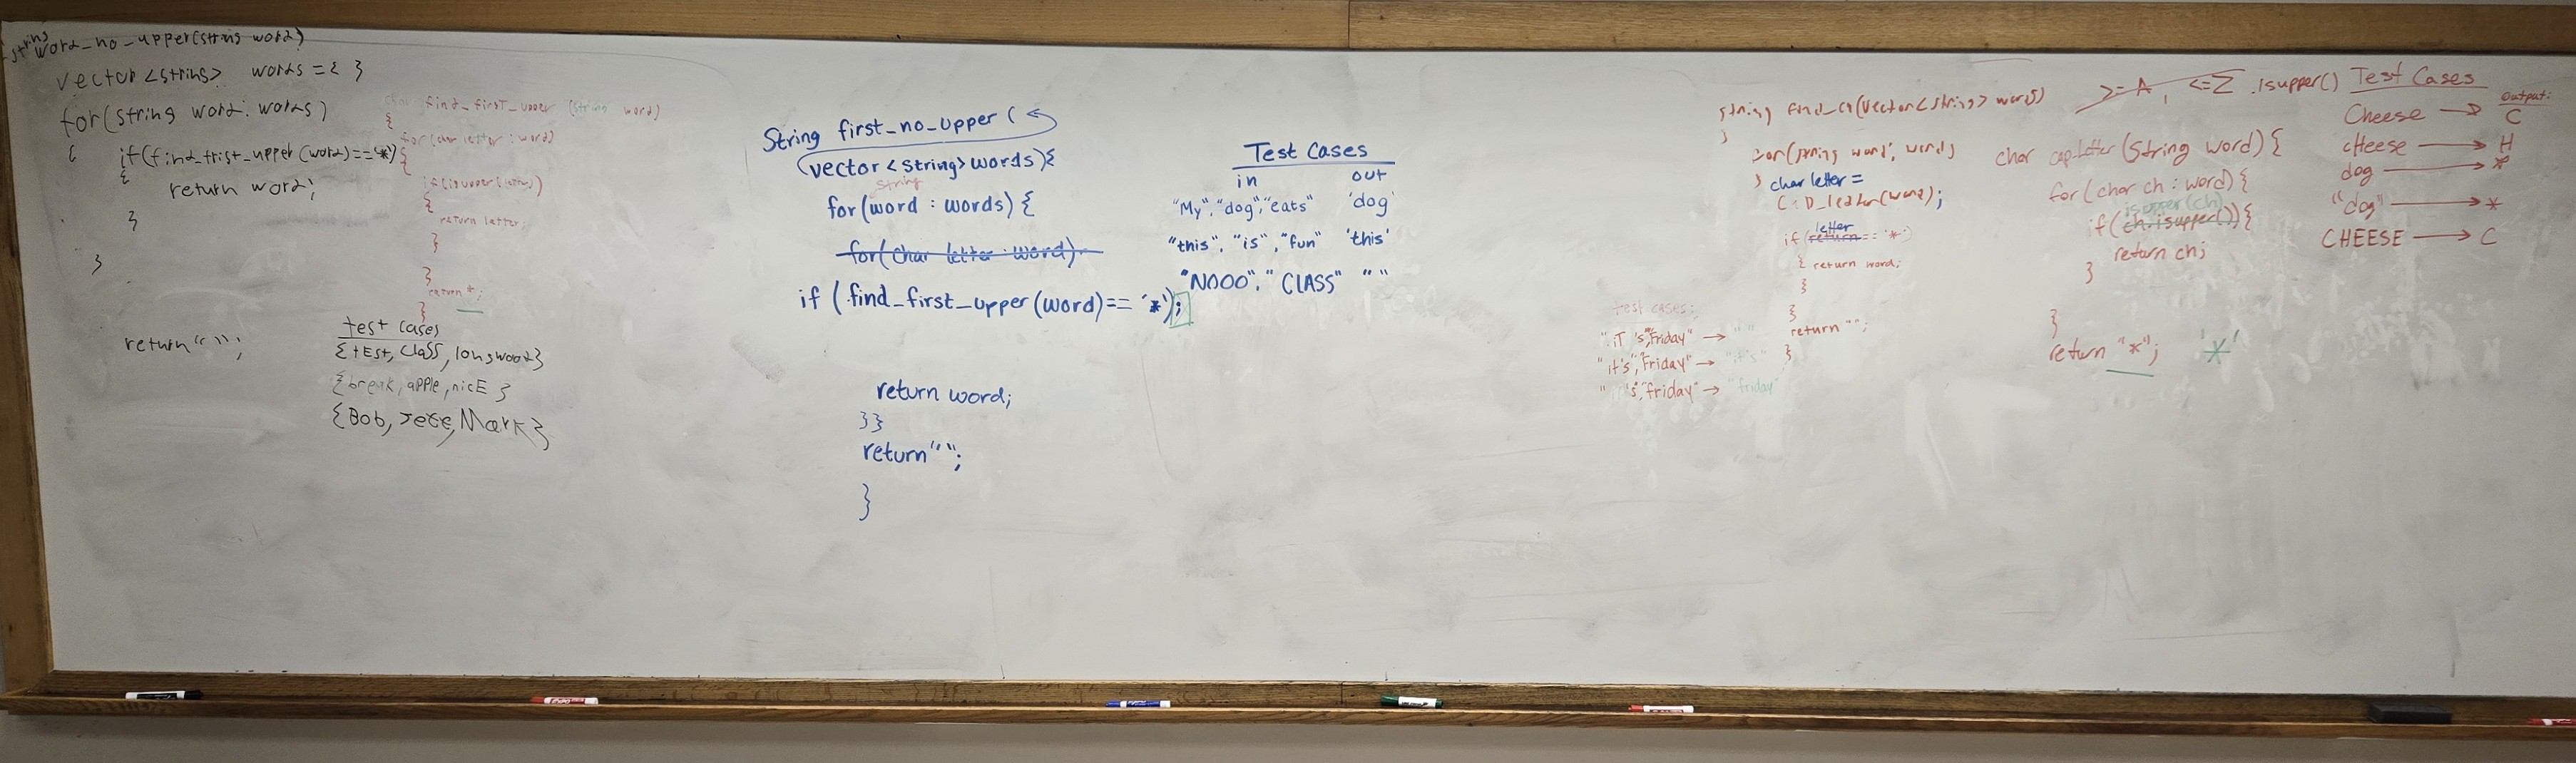 string word_no_upper(string word)
vector<string> words = { }
for(string word: words)
{ if(find_frist_upper(word)=='*')
{
return word;
}
}
return "";
char find_first_upper (string word)
{
for(char letter : word)
{
if(isupper(letter))
{
return letter;
}
}
return *;
}
test cases
{tEst, Class, longwood}
{break, apple, nicE }
{Bob, Mark}
String first_no_upper (
(vector<string> words){
string
for(word : words) {
for(char letter : word)
if (find_first_upper(word)== '*');
return word;
}}
return"";
}
Test Cases
in out
"My", "dog", "eats" 'dog'
"this", "is", "fun" 'this'
"NOOO", "CLASS" " "
string find_cap(vector<string> words)
}
for(string word: words
} char letter =
(word);
letter
if (return == '*')
{ return word;
}
}
return "";
}
test cases:
"iT's", "Friday" → " "
"it's", Friday" → "it's"
's", "friday" → "friday"
>= A, <=Z .isupper()
char capletter(String word) {
for(char ch : word) {
isupper(ch)
if(ch.isupper()){
return ch;
}
}
return "*"; '*'
Test Cases
output:
Cheese → C
cHeese → H
dog → *
"dog" → *
CHEESE → C